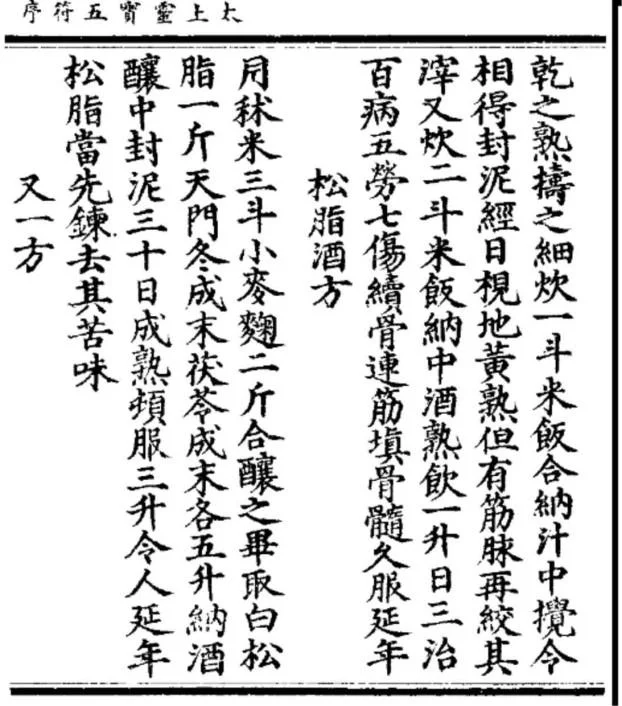 太上靈寶五符序
乾之熟擣之細炊一斗米飯合納汁中攪令
相得封泥經日梘地黃熟但有筋脉再絞其
滓又炊二斗米飯納中酒熟飲一升日三治
百病五勞七傷續骨連筋塡骨髓久服延年
松脂酒方
用秫米三斗小麥麴二斤合釀之畢取白松
脂一斤天門冬成末茯苓成末各五升納酒
釀中封泥三十日成熟頓服三升令人延年
松脂當先鍊去其苦味
又一方